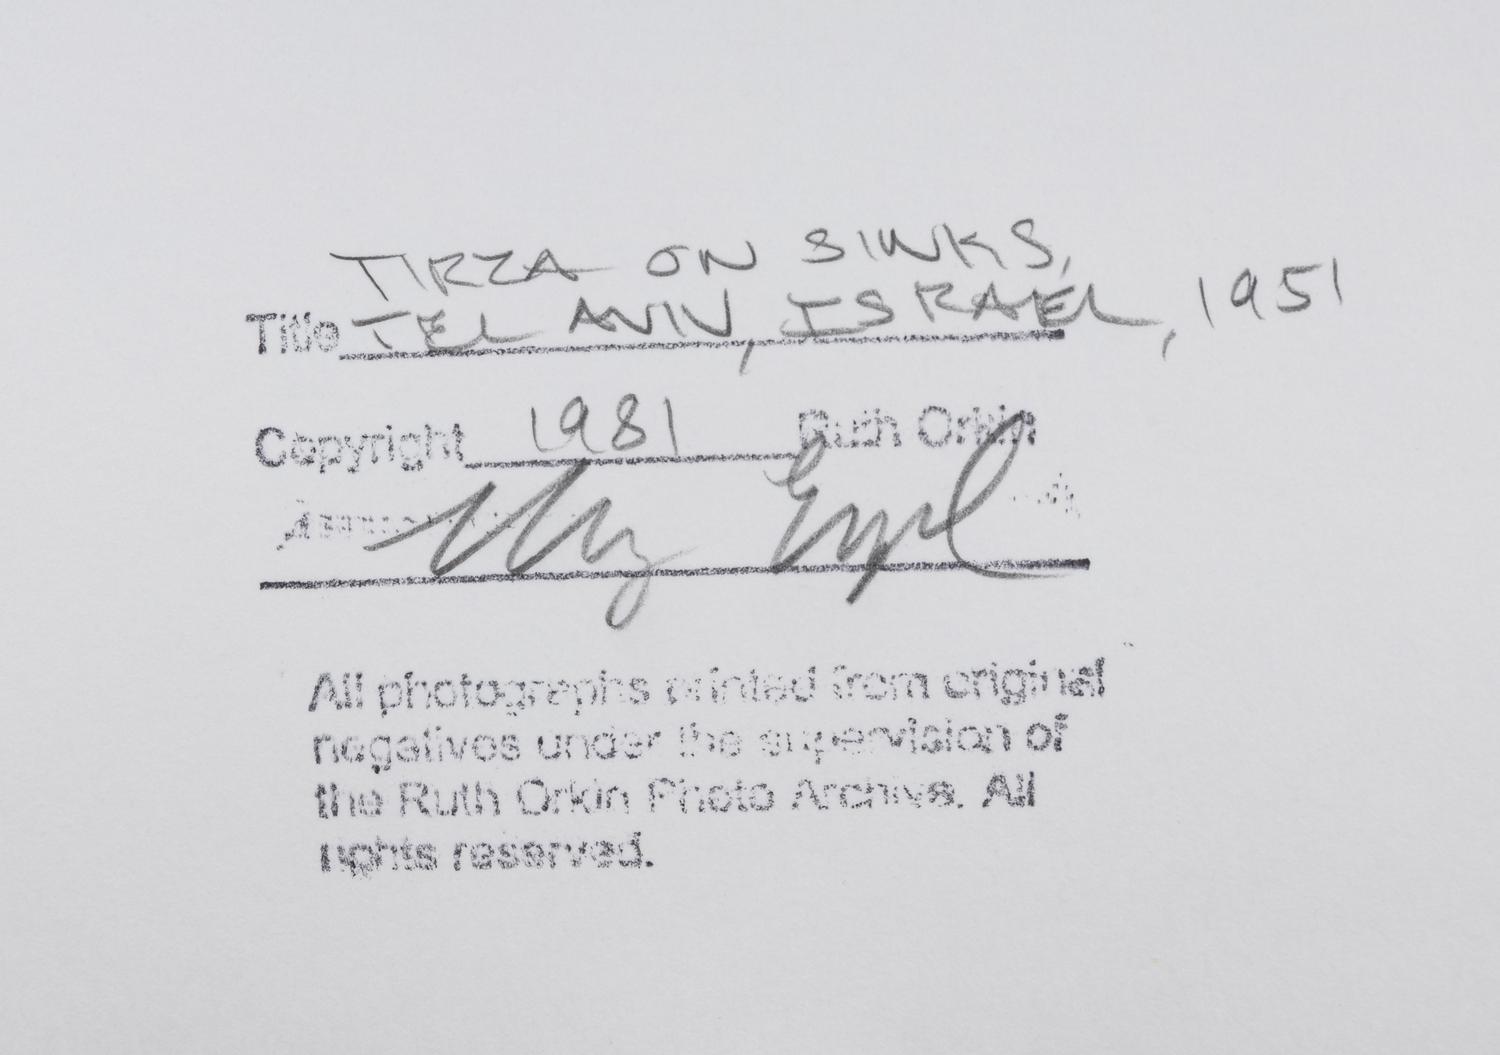 TIRZA ON SINKS,
Title TEL AVIV, ISRAEL, 1951
Copyright 1981 Ruth Orkin
All photographs printed from original
negatives under the supervision of
the Ruth Orkin Photo Archive. All
rights reserved.